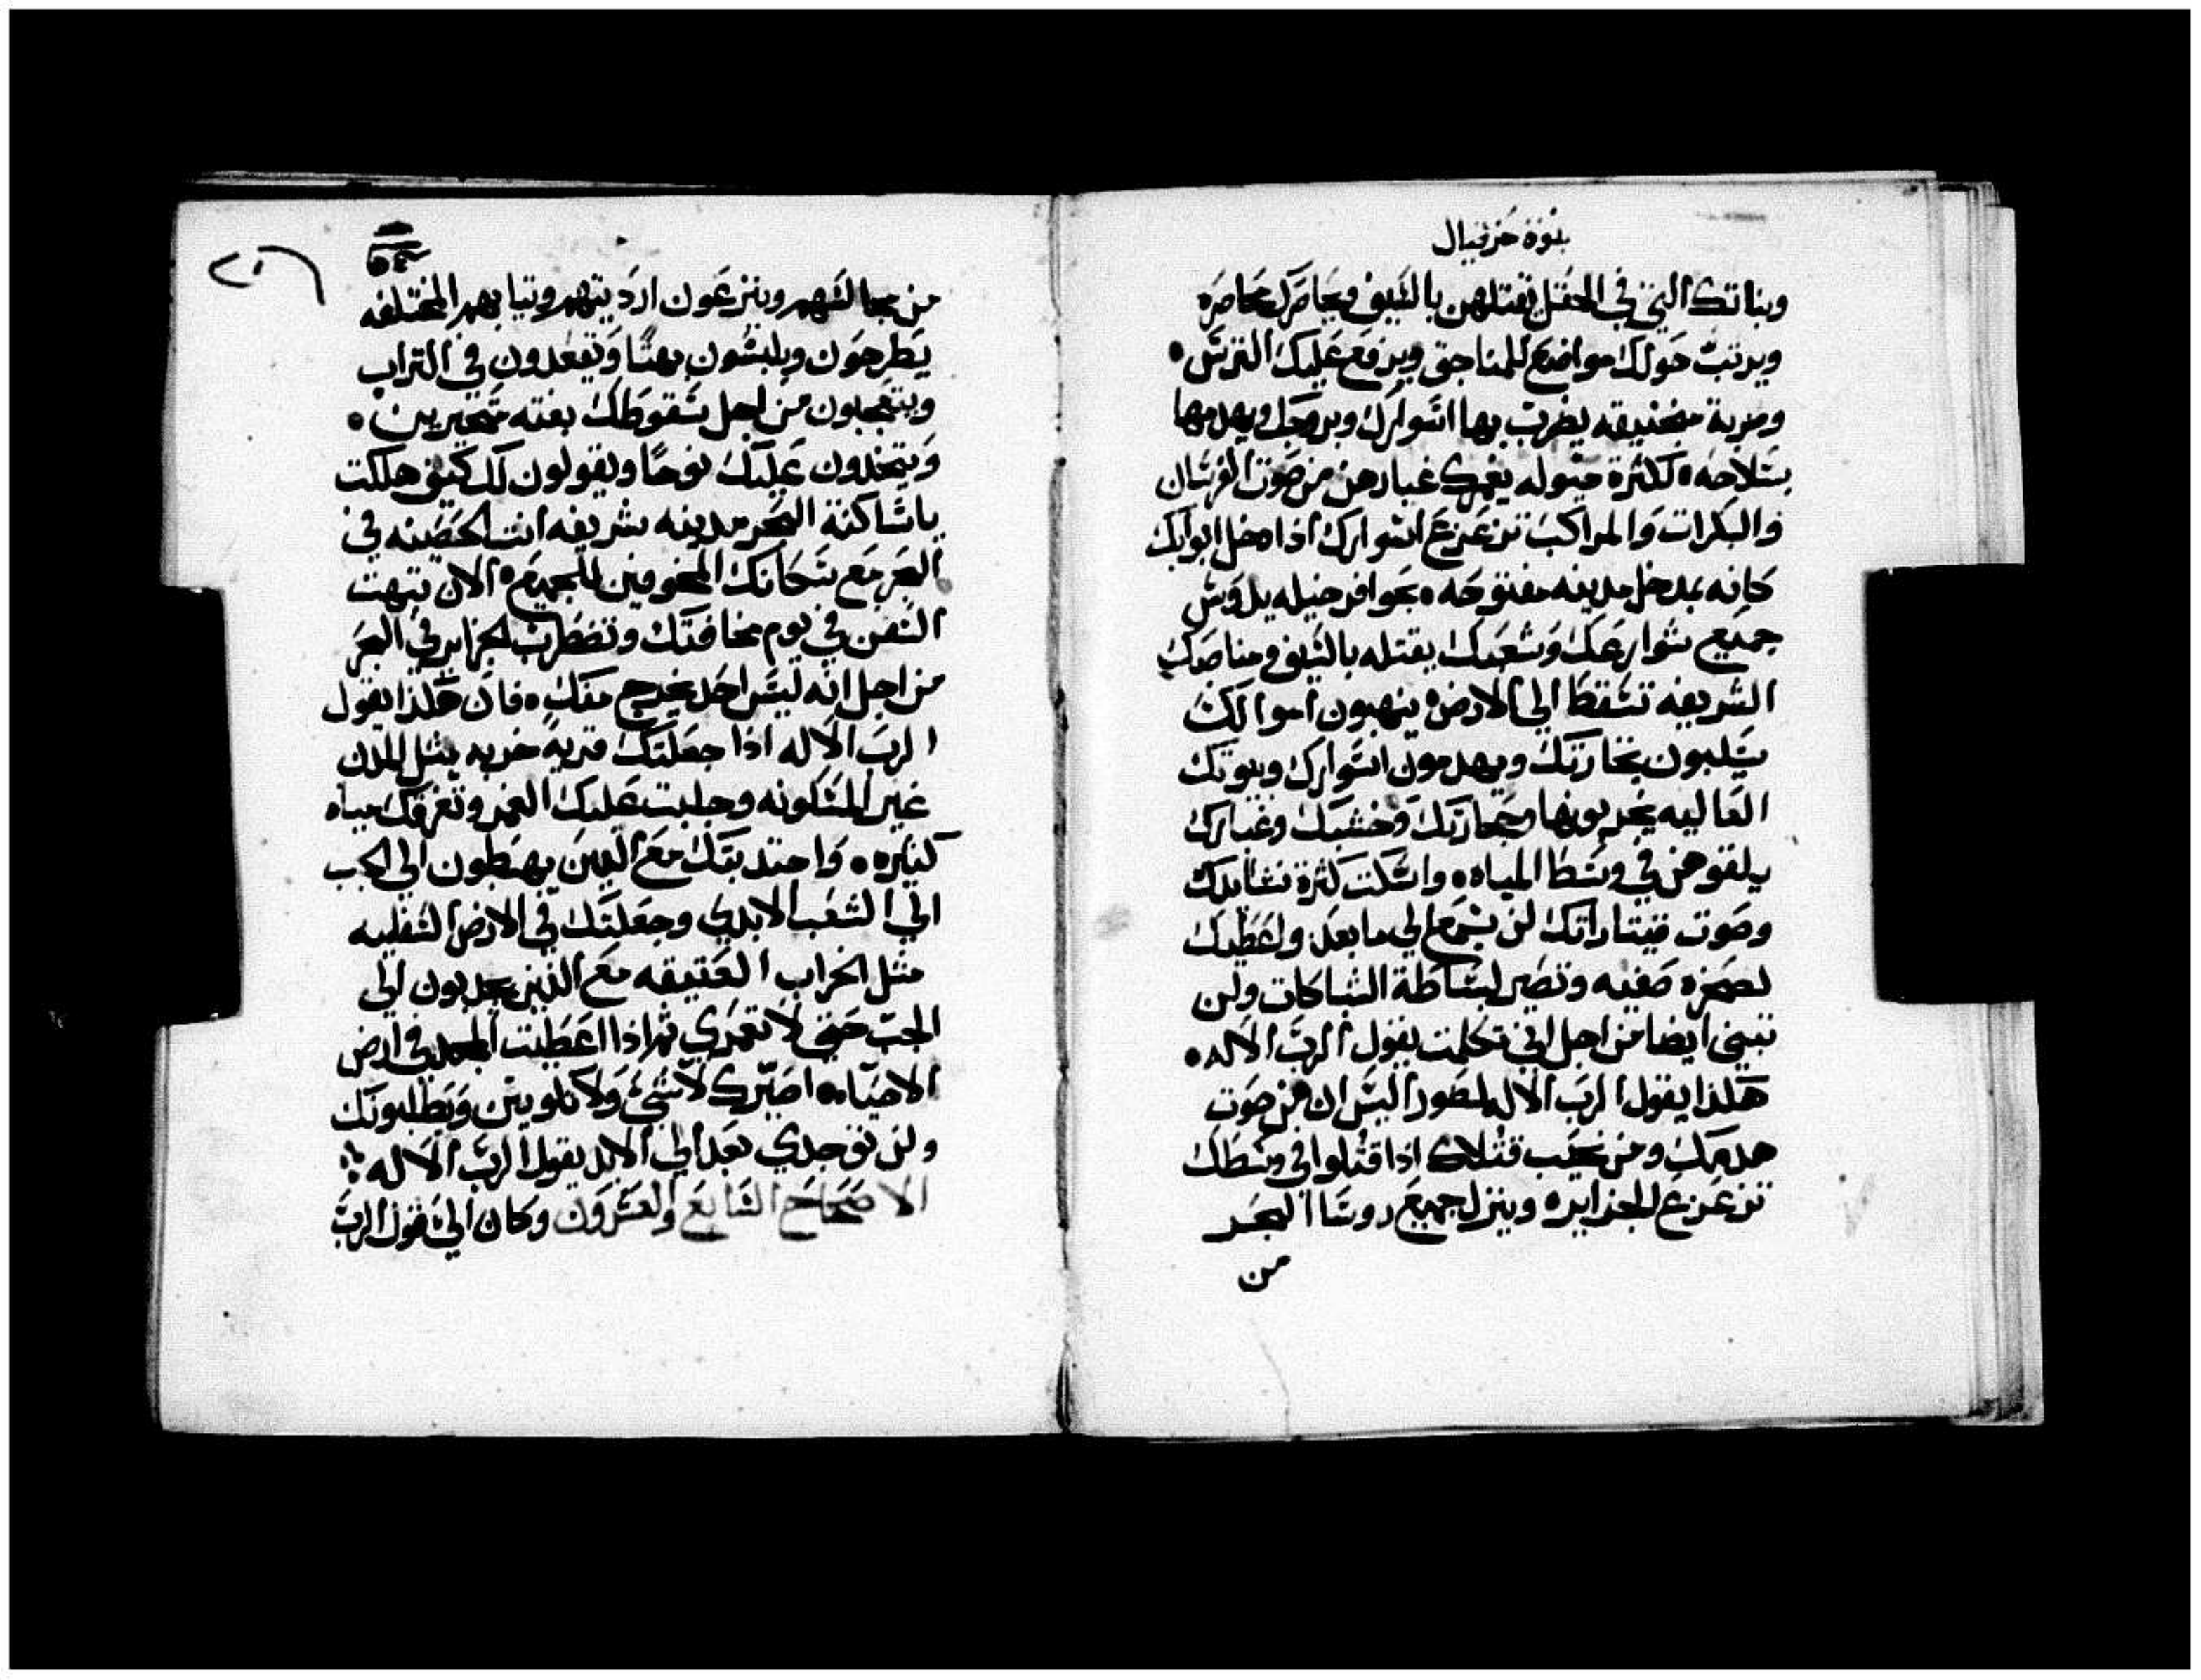 بنوة حزقيال
وبناتك التي في الحقل يقتلهن بالسيف ويحاصرك محاصره
ويرتب حولك مواضع للمناجق ويرفع عليك الترس •
ومربة منجنيقه يضرب بها اسوارك وبروجك ويهدمها
بسلاحه • لكثرة خيوله يغمرك غبارهن من صوت الفرسان
والبكرات والمراكب تزعزع اسوارك اذا دخل ابوابك
كانه بمدخل مدينه مفتوحه • بحوافر خيله يدوس
جميع شوارعك وشعبك يقتله بالسيف ومناصبك
الشريفه تسقط الي الارض • ينهبون اموالك
يسلبون تجارتك ويهدمون اسوارك وبيوتك
العاليه يخربونها وحجارتك وخشبك وغبارك
يلقوهن في وسط المياه • واسكت كثرة نشايدك
وصوت قيتاراتك لن يسمع الي ما بعد واعطيك
لصخره صفيه وتصير لبساطة الشباكات ولن
تبني ايضا من اجل اني تكلمت يقول الرب الاله •
هكذا يقول الرب الاله لصور اليس ان من صوت
هدمك ومن نحيب قتلاك اذا قتلوا في وسطك
تزعزع الجزاير • وينزل جميع روسا البحر
من
٢٠٦
٥٤
من مجالسهم وينزعون ارديتهم وتيابهم المختلفه
يطرحون ويلبسون بهتا وتقعدون في التراب
ويتعجبون من اجل سقوطك بغته متحيرين •
ويتخدون عليك نوحا ويقولون لك كيف هلكت
ياساكنة البحر مدينه شريفه انت الحصينه في
البحر مع سكانك المخوفين للجميع • الان تبهت
السفن في يوم مخافتك وتضطرب الجزاير في البحر
من اجل انه ليس احد يخرج منك • فان هكذا يقول
الرب الاله اذا جعلتك قرية خربه مثل المدن
غير المسكونه وجلبت عليك الغمر وتغرقك مياه
كتيره • واحتدبتك مع الدين يهبطون الي الجب
الي الشعب الابدي وجعلتك في الارض السفليه
مثل الخراب العتيقه مع الذين يحدبون الي
الجب حتي لا تعمري ثم اذا اعطيت المجد في ارض
الاحياء • اصيرك لا شيء ولا تكونين ويطلبونك
ولن توجدي بعد الي الابد يقول الرب الاله :
الاصحاح السابع والعشرون وكان الي قول الرب